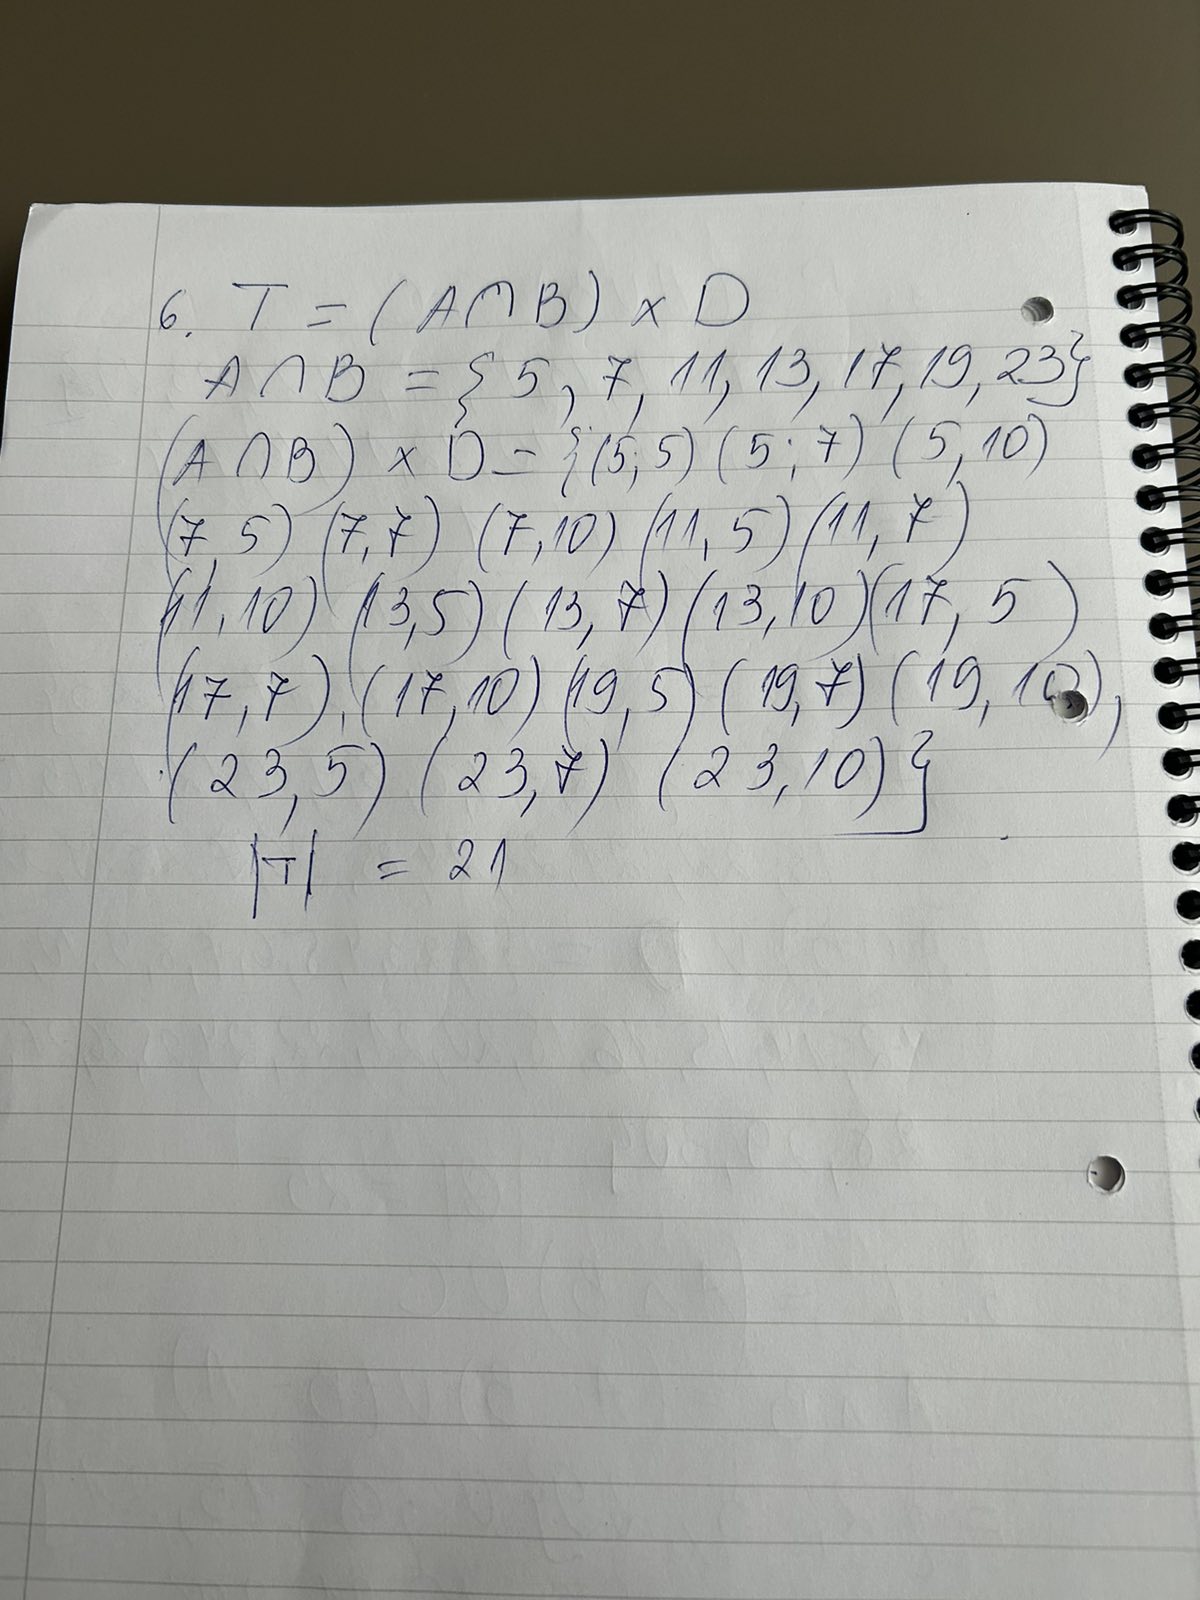 6. T = (A∩B) x D
A∩B = {5, 7, 11, 13, 17, 19, 23}
(A∩B) x D = {(5;5) (5;7) (5,10)
(7,5) (7,7) (7,10) (11,5) (11,7)
(11,10) (13,5) (13,7) (13,10) (17,5)
(17,7), (17,10) (19,5) (19,7) (19,10),
(23,5) (23,7) (23,10)}
|T| = 21